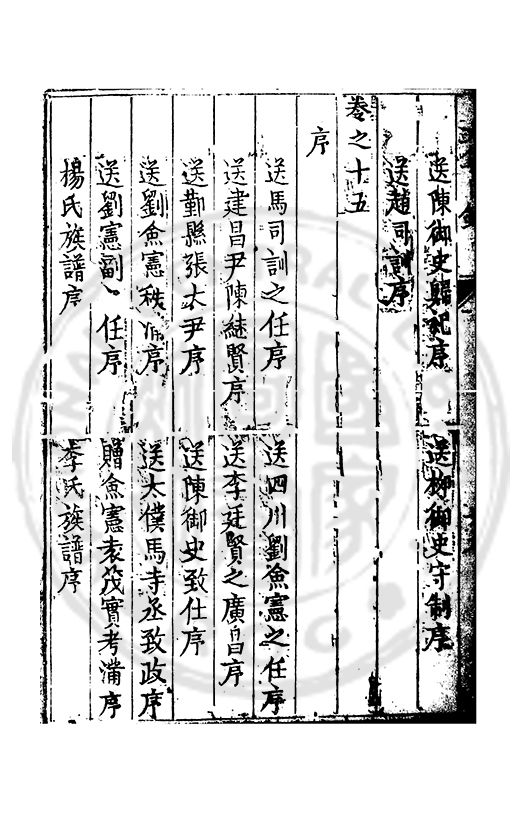 送陳御史歸祀序　送柳御史守制序
送趙司訓序
卷之十五
序
送馬司訓之任序　送四川劉僉憲之任序
送建昌尹陳繼賢序　送李廷賢之廣昌序
送鄞縣張大尹序　送陳御史致仕序
送劉僉憲秩滿序　送太僕馬寺丞致政序
送劉憲副　任序　贈僉憲袁茂實考滿序
楊氏族譜序　李氏族譜序